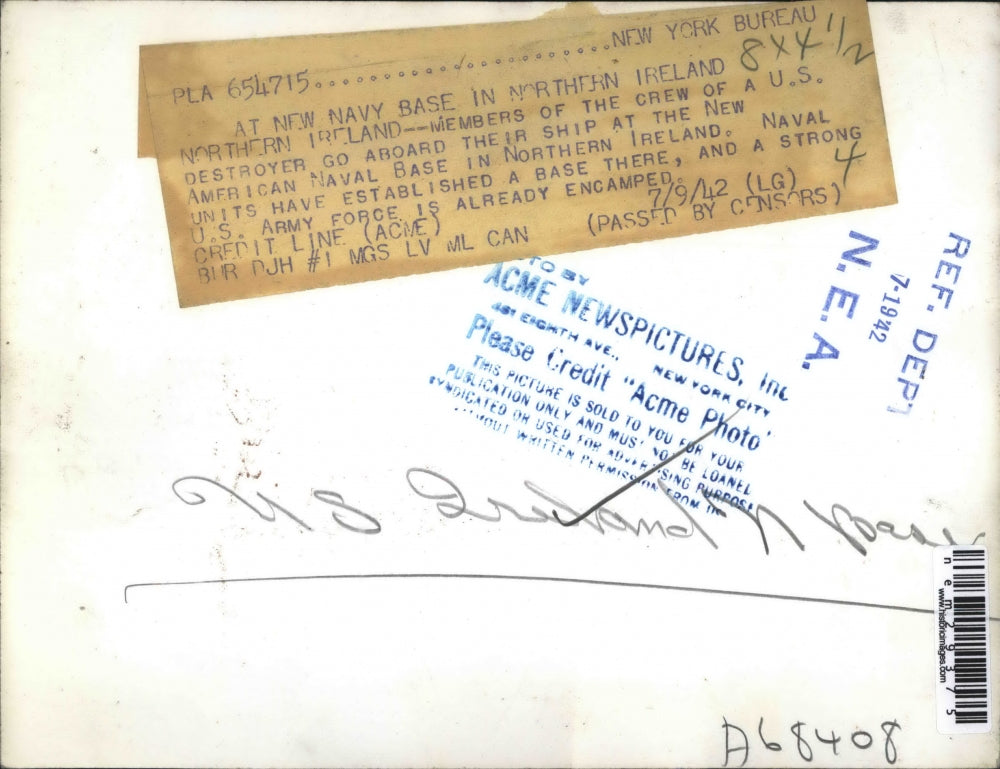 PLA 654715....................NEW YORK BUREAU
8x4 1/2
AT NEW NAVY BASE IN NORTHERN IRELAND
NORTHERN IRELAND--MEMBERS OF THE CREW OF A U.S.
DESTROYER GO ABOARD THEIR SHIP AT THE NEW
AMERICAN NAVAL BASE IN NORTHERN IRELAND. NAVAL
UNITS HAVE ESTABLISHED A BASE THERE, AND A STRONG
U.S. ARMY FORCE IS ALREADY ENCAMPED.
4
CREDIT LINE (ACME) 7/9/42 (LG)
BUR DJH #1 MGS LV ML CAN (PASSED BY CENSORS)
TO BY
ACME NEWSPICTURES, Inc
461 EIGHTH AVE., NEW YORK CITY
Please Credit "Acme Photo"
THIS PICTURE IS SOLD TO YOU FOR YOUR
PUBLICATION ONLY AND MUST NOT BE LOANED
SYNDICATED OR USED FOR ADVERTISING PURPOSE
WITHOUT WRITTEN PERMISSION FROM
REF. DEPT
7-1942
N.E.A.
US Ireland N Base
nem29375
www.historicimages.com
A68408